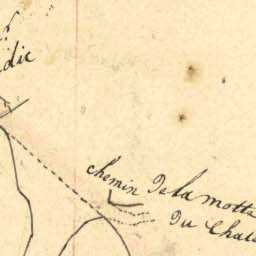 dic
chemin De la motte
Du Chate